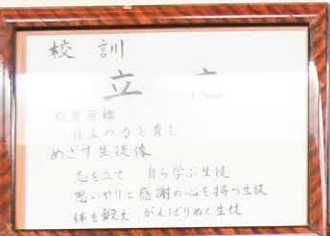 校訓
立志
めざす生徒像
志を立て 自ら学ぶ生徒
思いやりと感謝の心を持つ生徒
体を鍛え がんばりぬく生徒